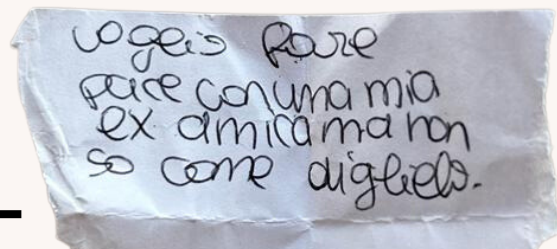 vogeio fare
pace con una mia
ex amica ma non
so come diglielo.